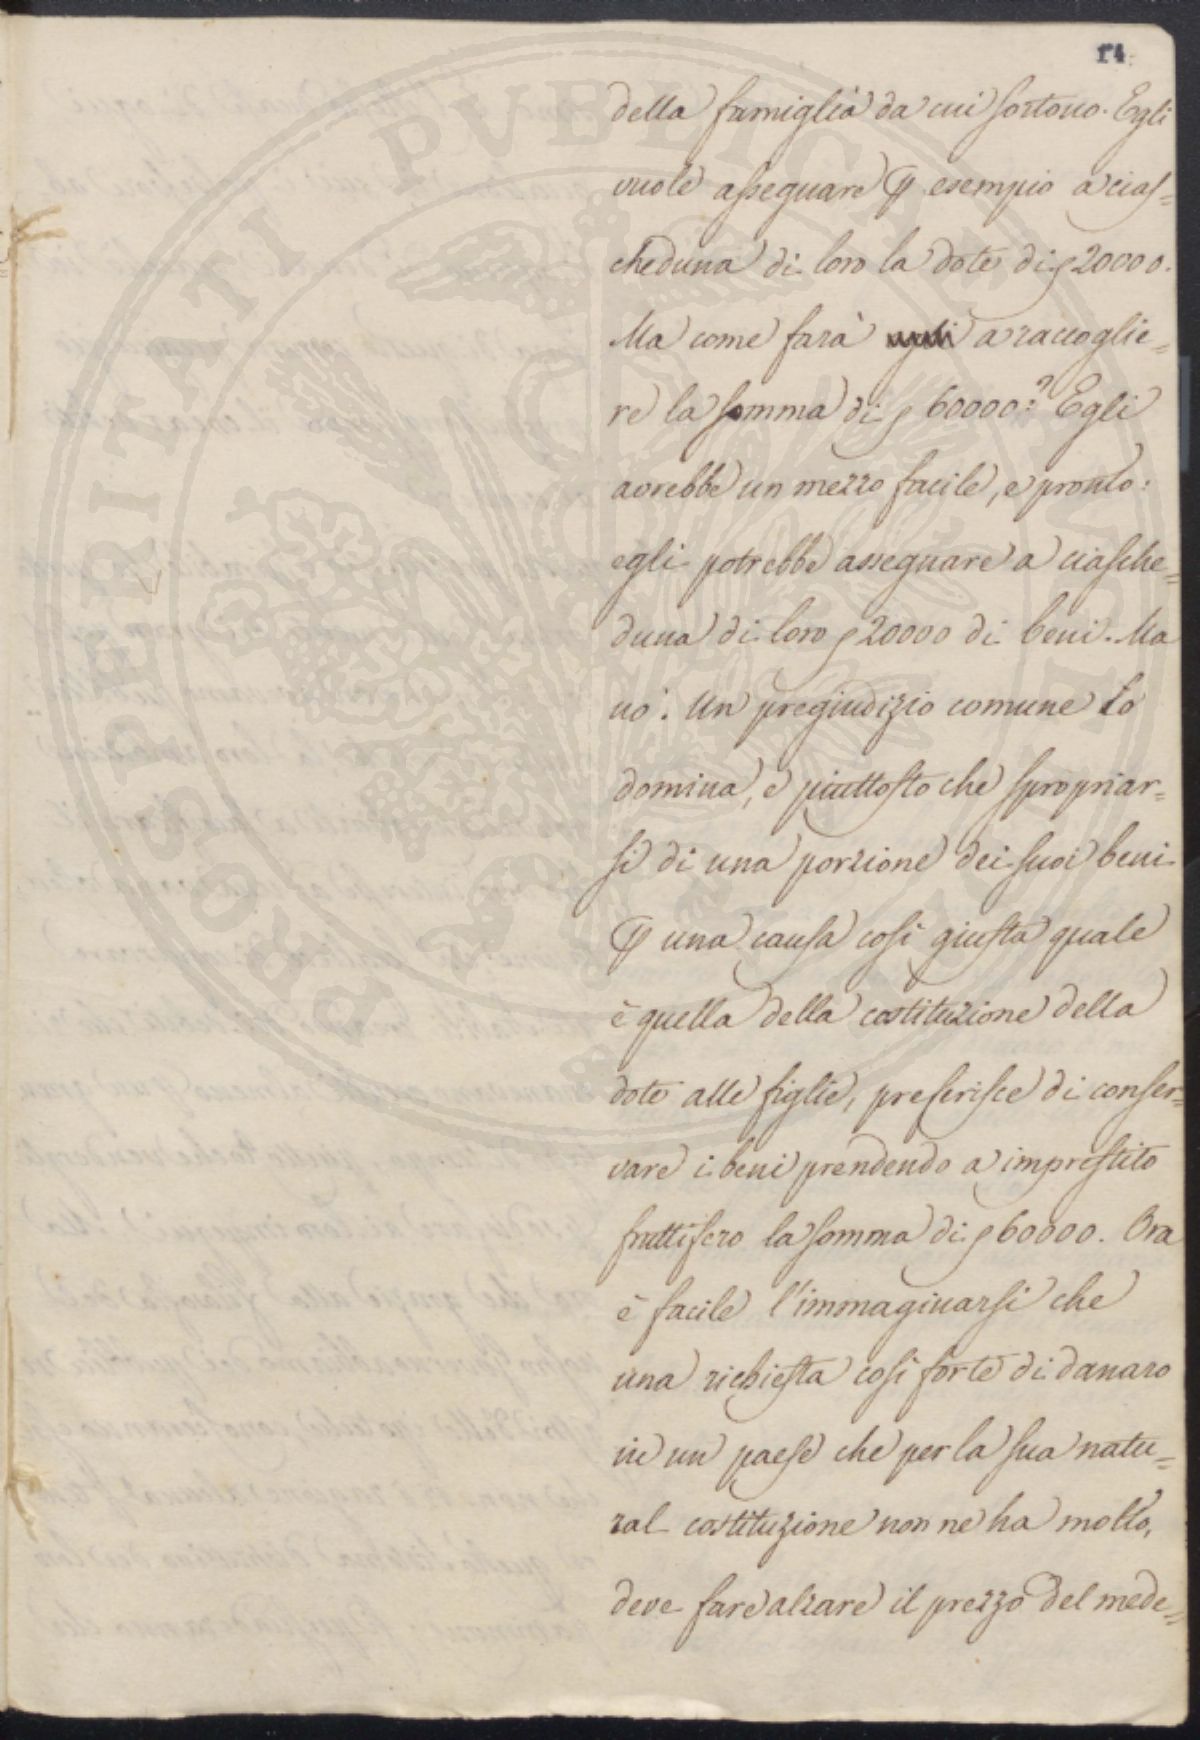 14
della famiglia da cui sortono. Egli
vuole assegnare ꝑ esempio a cias=
cheduna di loro la dote di ƒ 20000.
Ma come farà a raccoglie=
re la somma di ƒ 60000:? Egli
avrebbe un mezzo facile, e pronto:
egli potrebbe assegnare a ciasche=
duna di loro ƒ 20000 di beni. Ma
nò. Un pregiudizio comune Lo
domina, e piuttosto che spropriar=
si di una porzione dei suoi beni
ꝑ una causa così giusta quale
è quella della costituzione della
dote alle figlie, preferisce di conser=
vare i beni prendendo a imprestito
fruttifero la somma di ƒ 60000. Ora
è facile l'immaginarsi che
una richiesta così forte di danaro
in un paese che per la sua natu=
ral costituzione non ne ha molto,
deve fare alzare il prezzo del mede=
PROSPERITATI PVBLICAE AVGENDAE